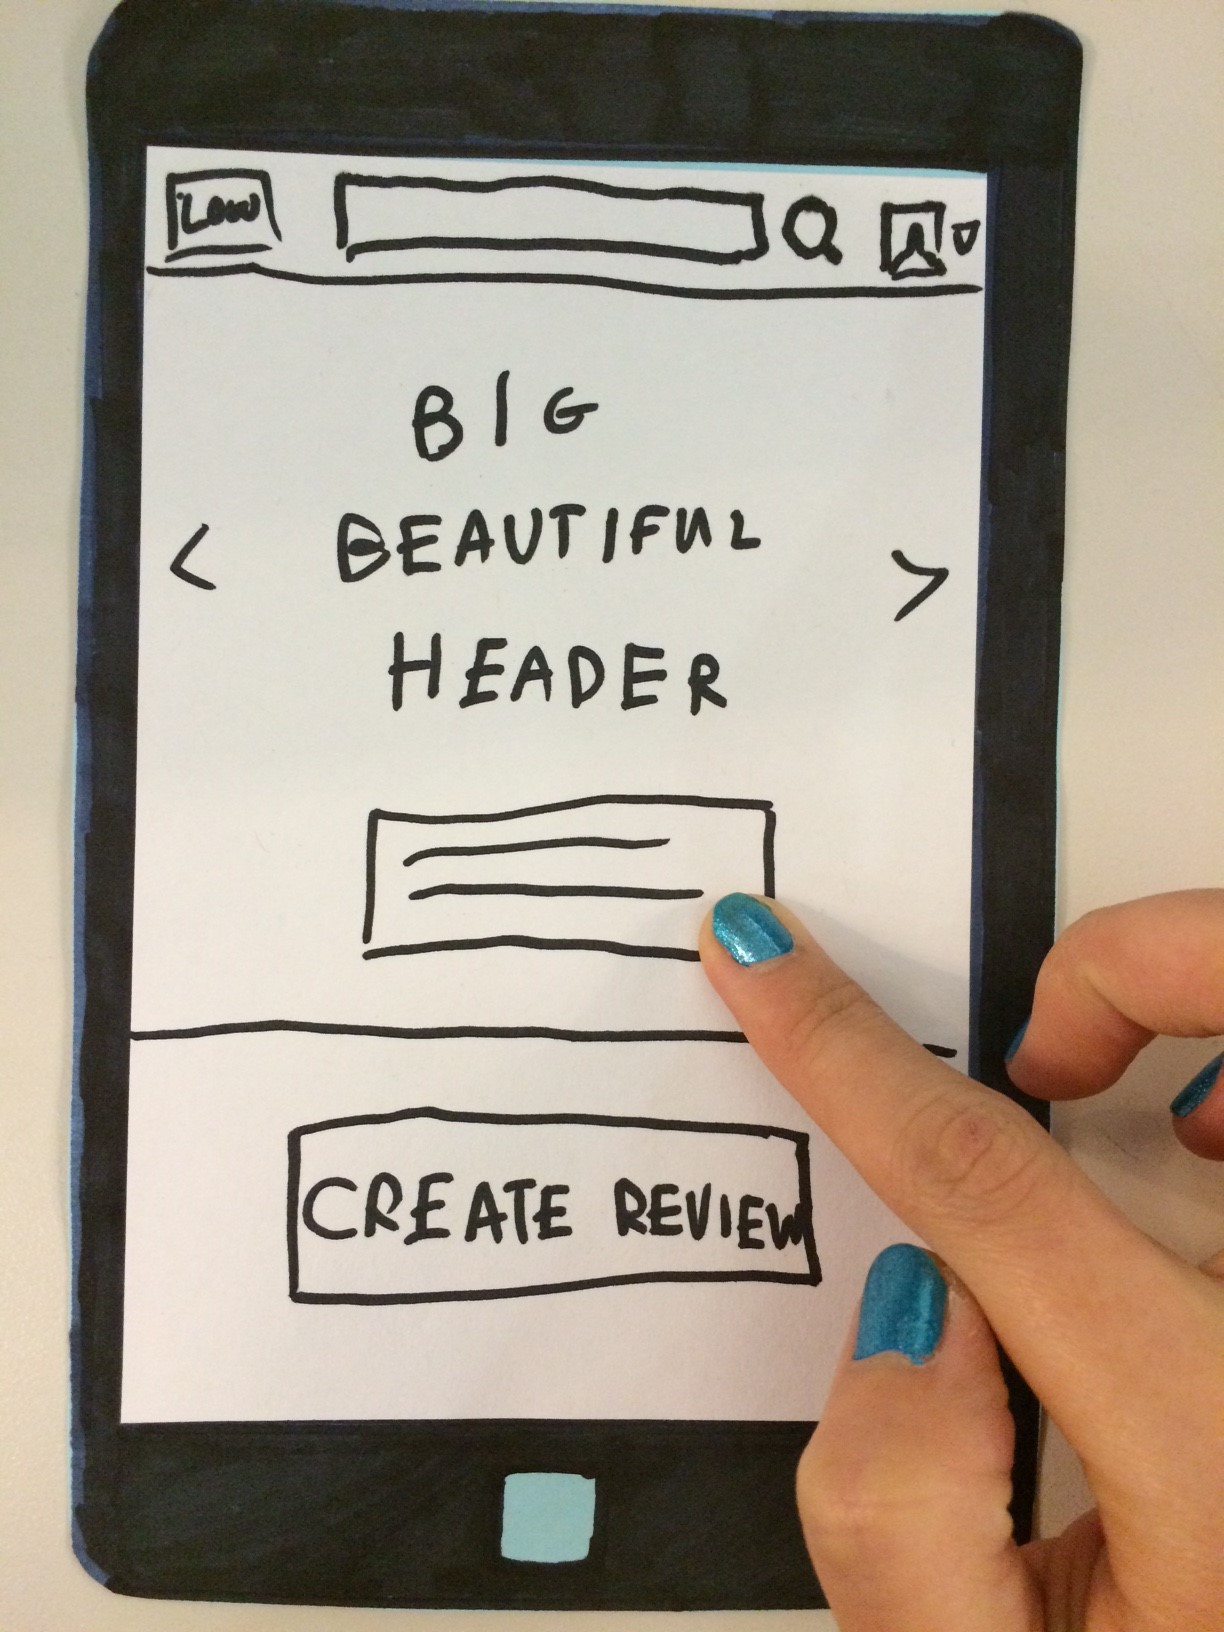 BIG
BEAUTIFUL
HEADER
CREATE REVIEW